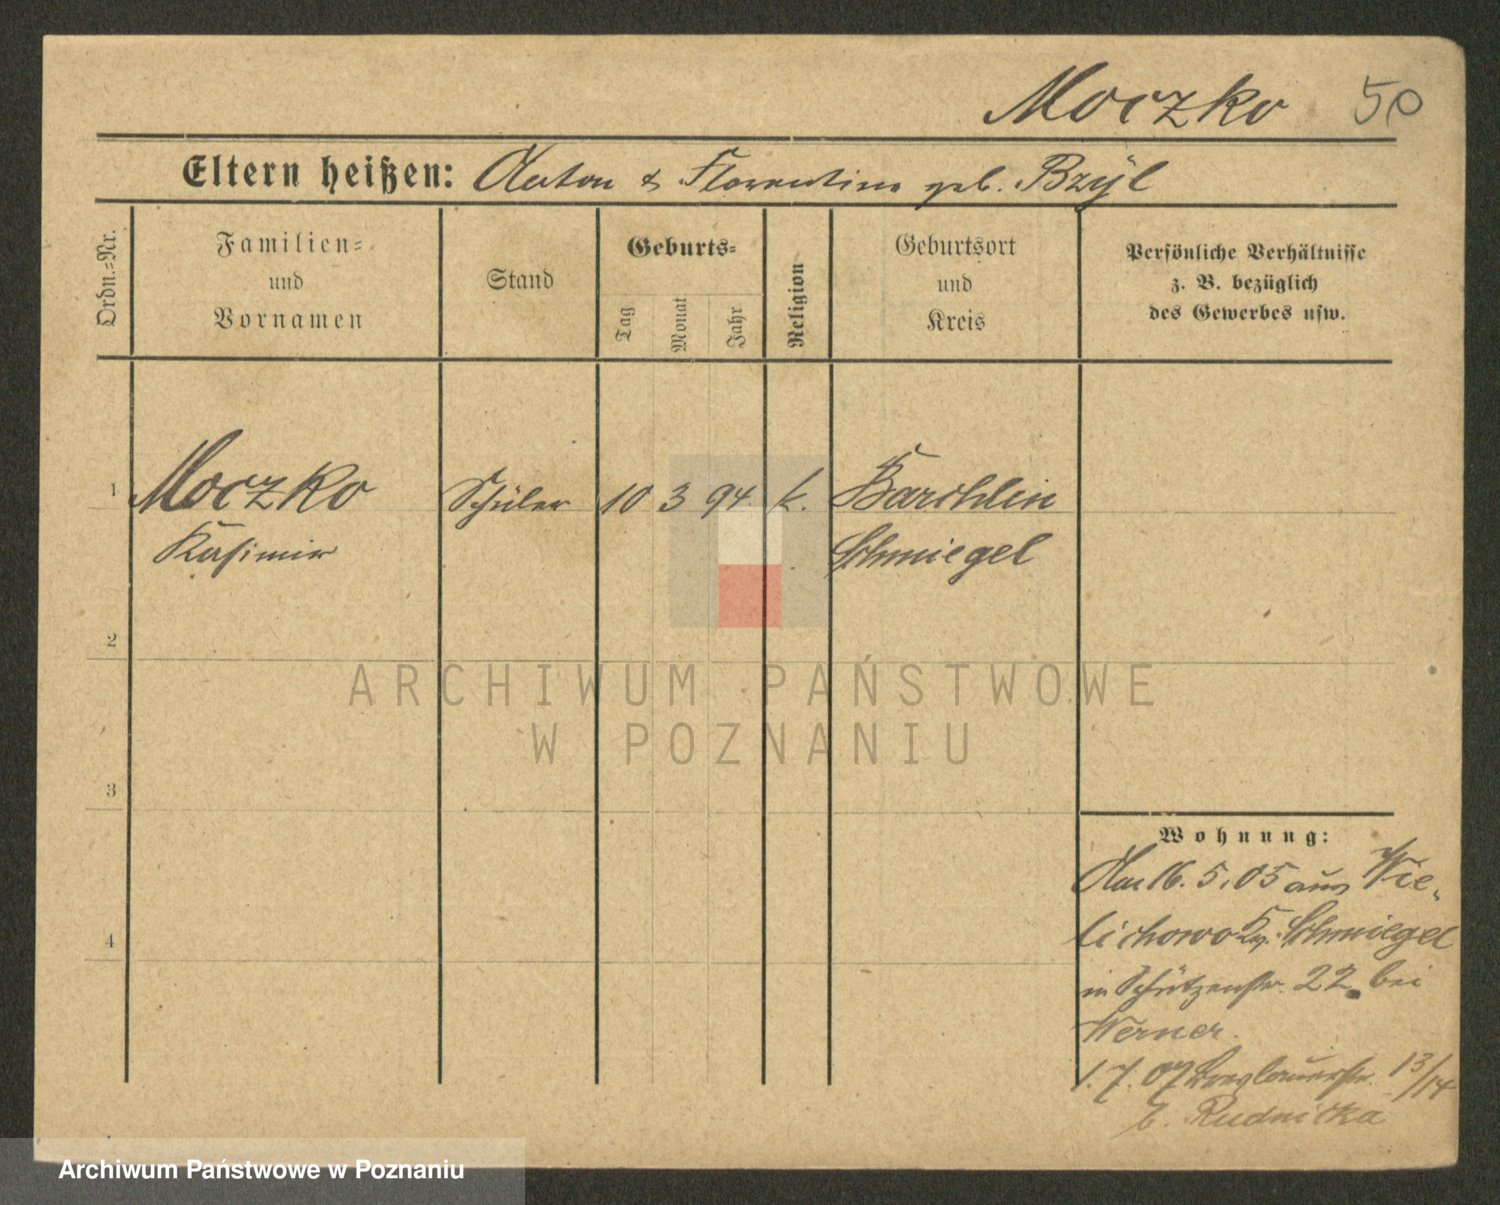 Moczko 50
Eltern heißen: Anton & Florentine geb. Bzyl
Ordn.-Nr.
Familien-
und
Vornamen
Stand
Geburts-
Tag
Monat
Jahr
Religion
Geburtsort
und
Kreis
Persönliche Verhältnisse
z. B. bezüglich
des Gewerbes usw.
1 Moczko Schüler 10 3 94 k. Barchlin
Kasimir Schmiegel
2
3
4
Wohnung:
Am 16. 5. 05 aus Wie-
lichowo Kr. Schmiegel
in Schützenstr. 22. bei
Werner.
1. 7. 07 Breslauerstr. 13/14
b. Rudnicka
ARCHIWUM PAŃSTWOWE
W POZNANIU
Archiwum Państwowe w Poznaniu